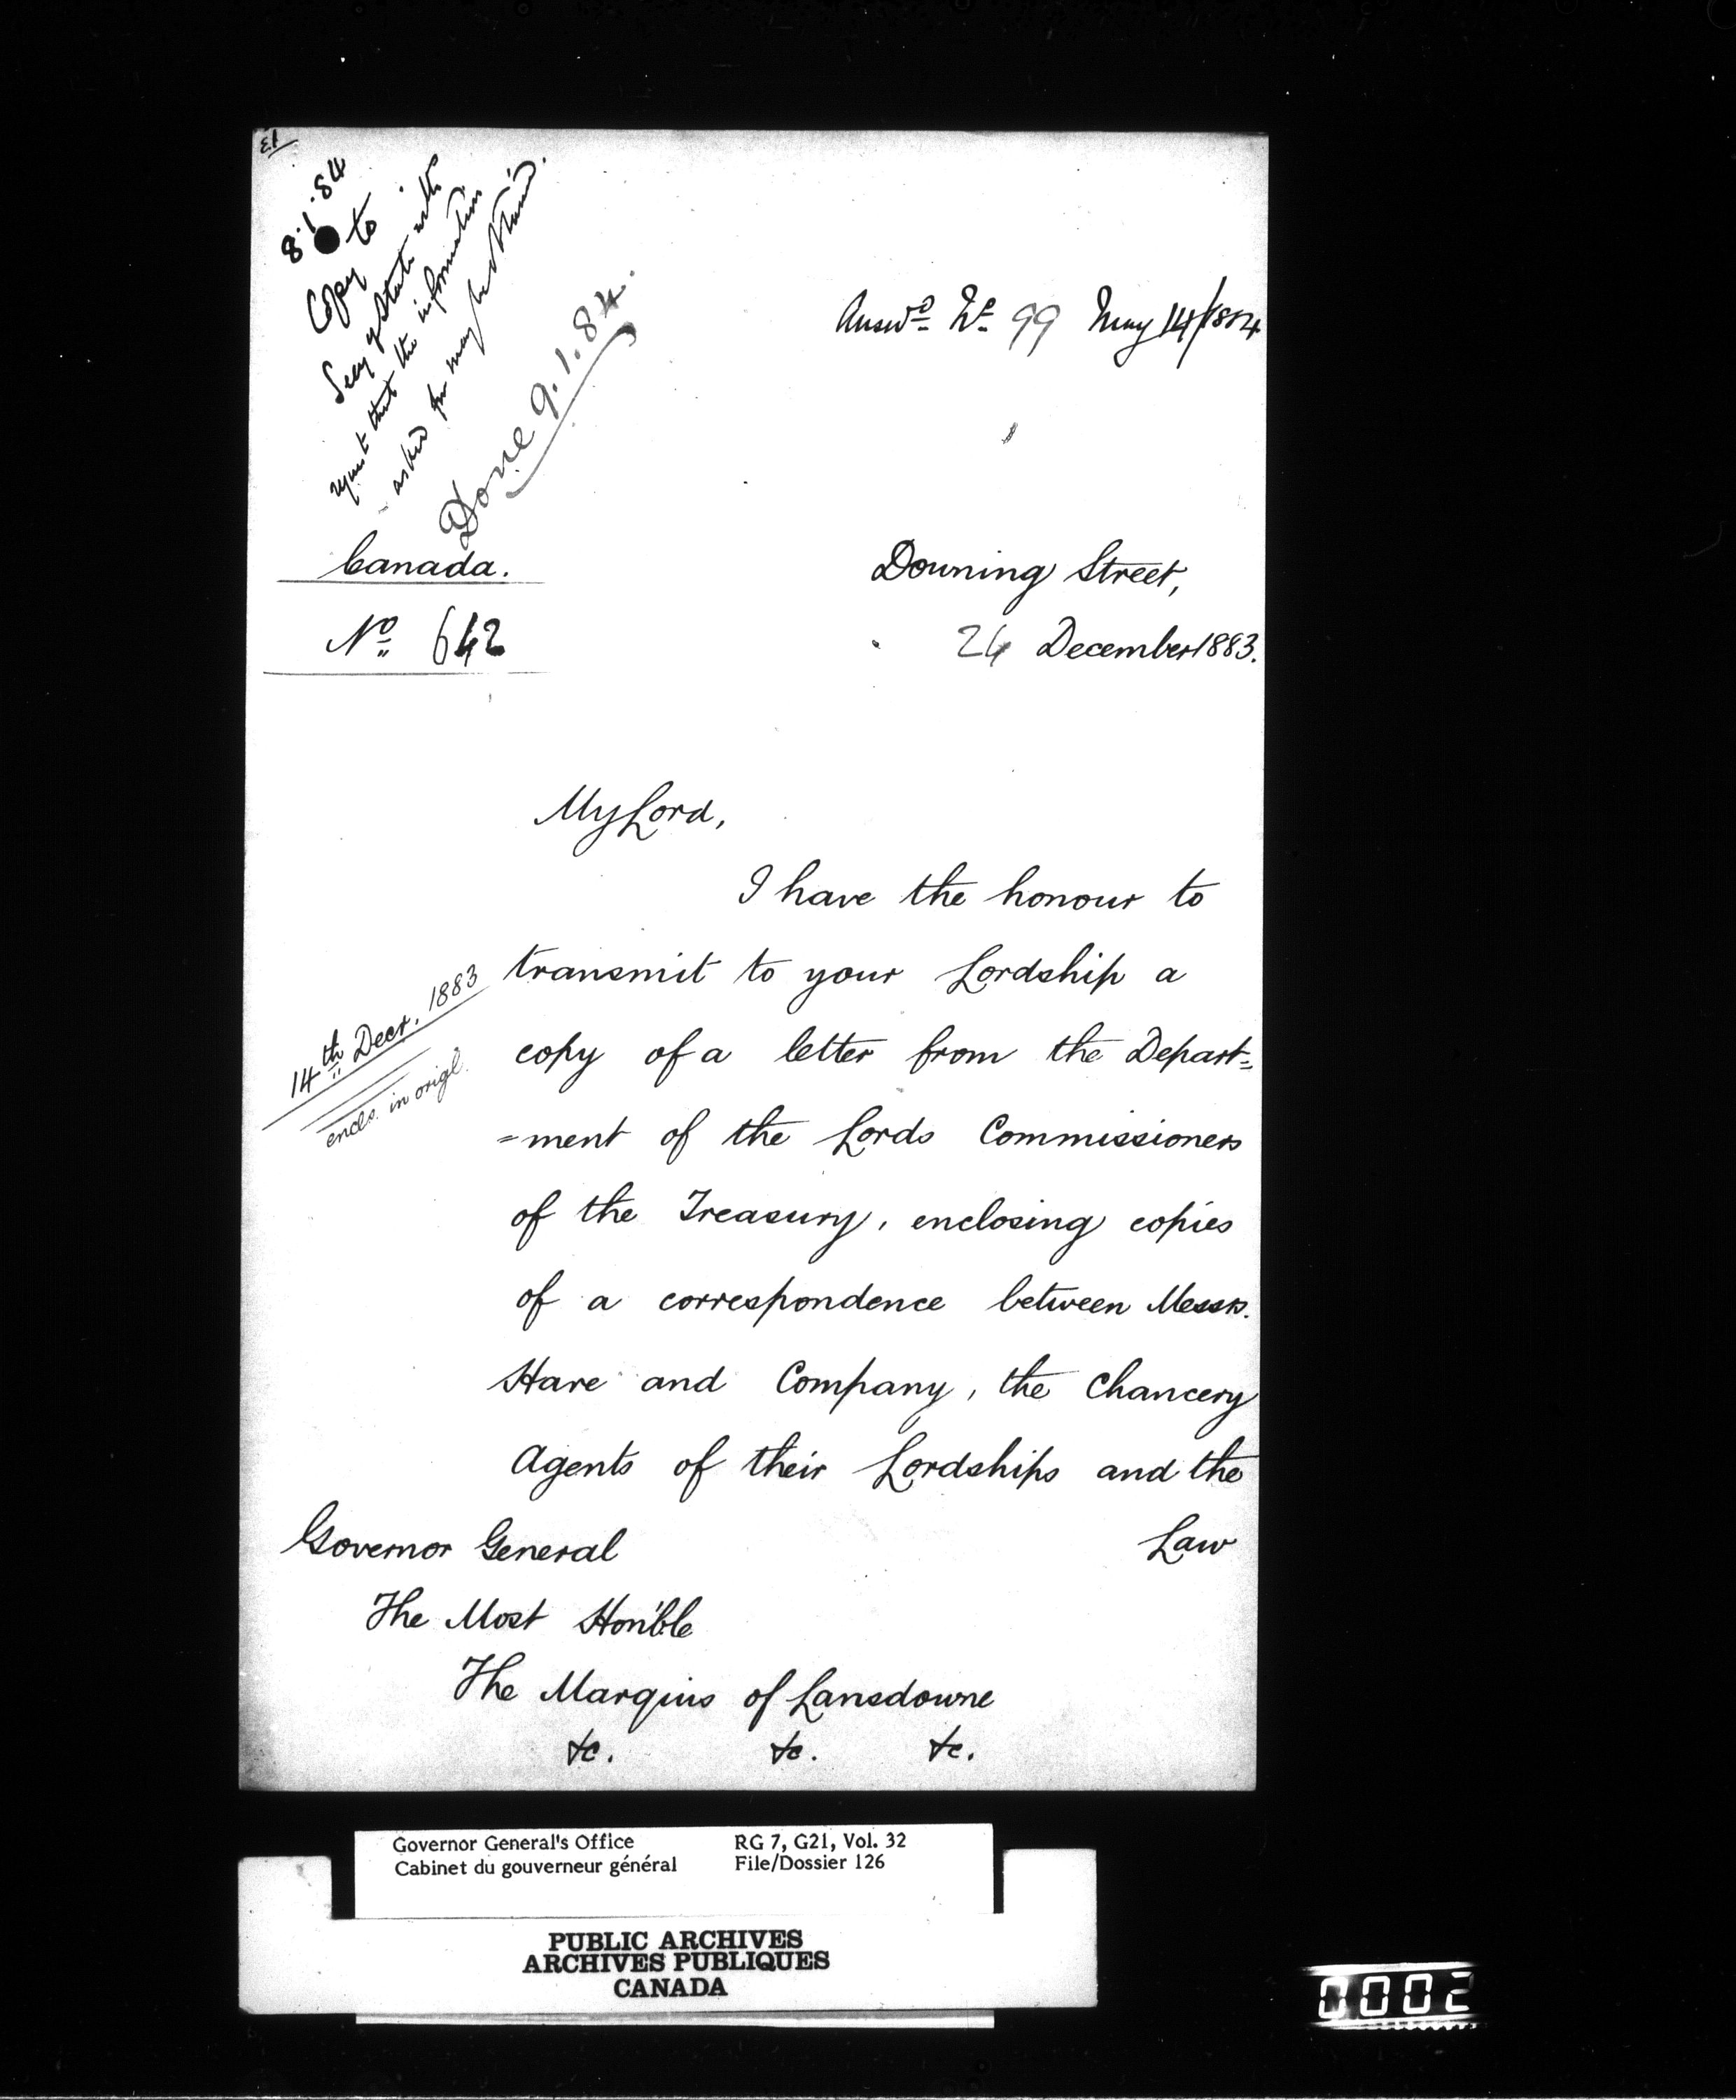 8.1.84
Copy to
Secy of State with
request that the information
asked for may be obtained.
Done 9.1.84.
Answd. No. 99 May 14/1884
Canada.
No. 642
Downing Street,
24 December 1883.
My Lord,
I have the honour to
transmit to your Lordship a
14th Decr. 1883
encls. in origl.
copy of a letter from the Depart=
=ment of the Lords Commissioners
of the Treasury, enclosing copies
of a correspondence between Messrs.
Hare and Company, the Chancery
Agents of their Lordships and the
Law
Governor General
The Most Hon'ble
The Marquis of Lansdowne
&c. &c. &c.
Governor General's Office RG 7, G21, Vol. 32
Cabinet du gouverneur général File/Dossier 126
PUBLIC ARCHIVES
ARCHIVES PUBLIQUES
CANADA
0002